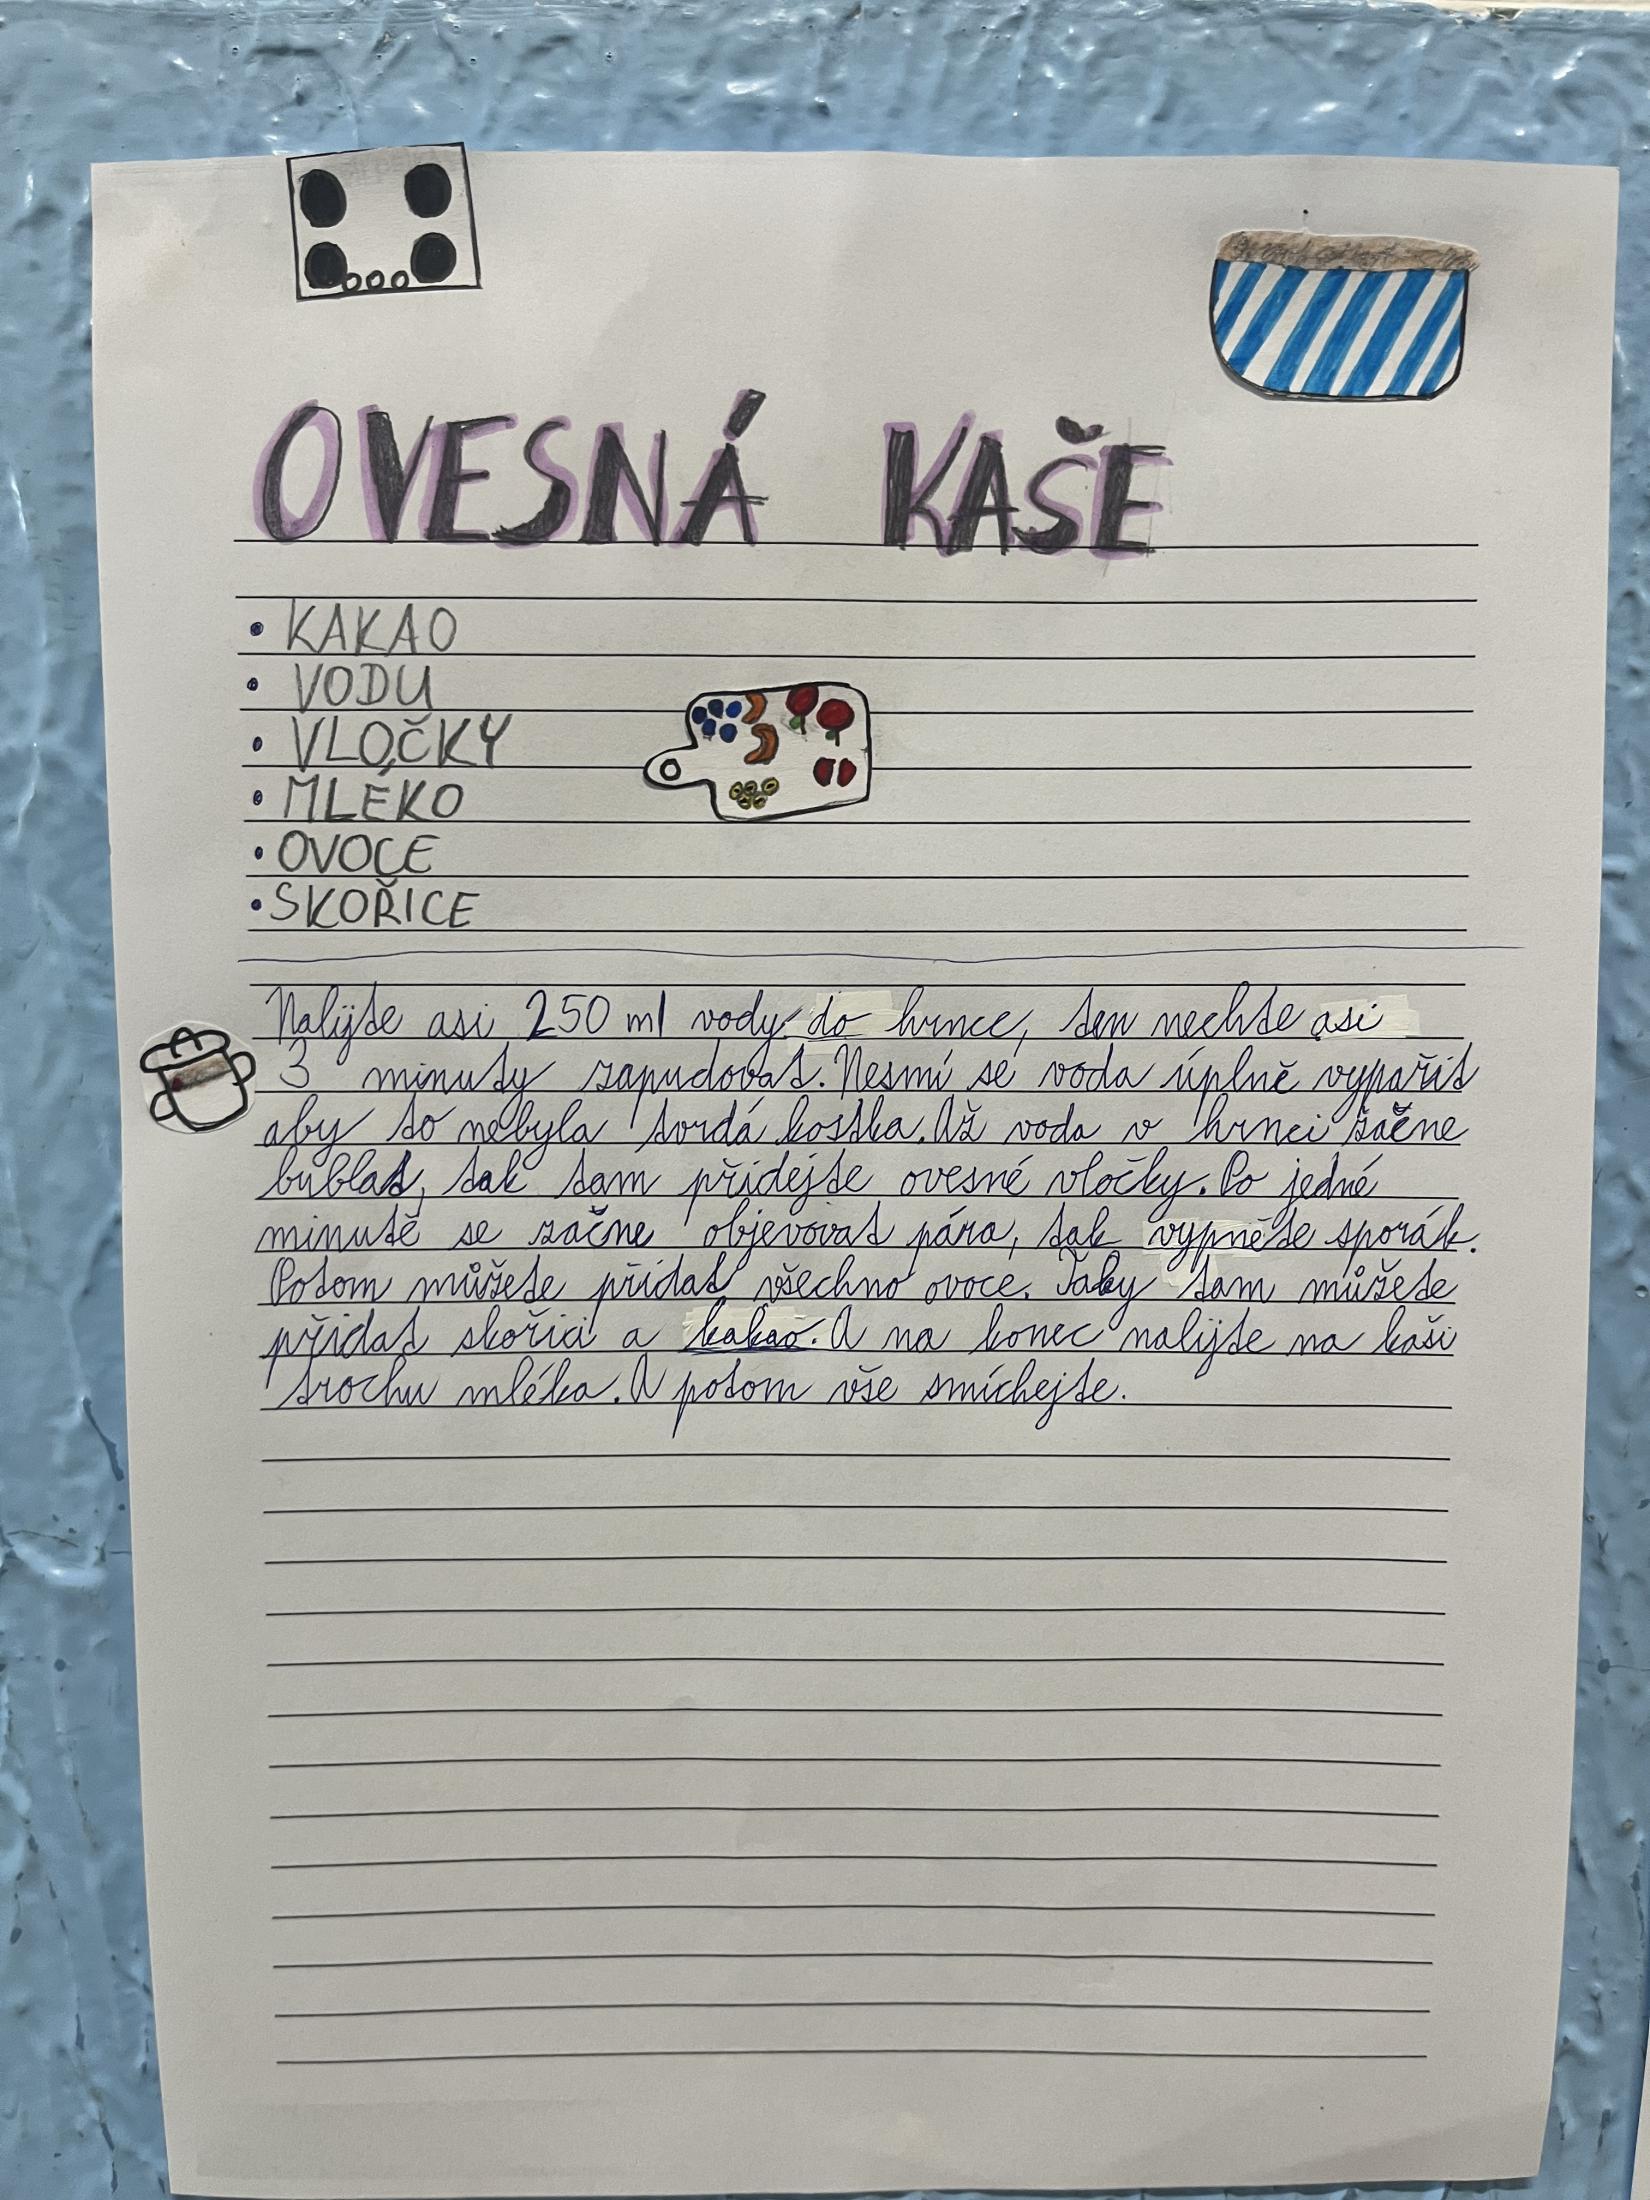 OVESNÁ KAŠE
• KAKAO
• VODU
• VLOČKY
• MLÉKO
• OVOCE
• SKOŘICE
Nalijte asi 250 ml vody do hrnce, ten nechte asi
3 minuty zapudovat. Nesmí se voda úplně vypařit
aby to nebyla tvrdá kostka. Až voda v hrnci začne
bublat, tak tam přidejte ovesné vločky. Po jedné
minutě se začne objevovat pára, tak vypněte sporák.
Potom můžete přidat všechno ovoce. Taky tam můžete
přidat skořici a kakao. A na konec nalijte na kaši
trochu mléka. A potom vše smíchejte.